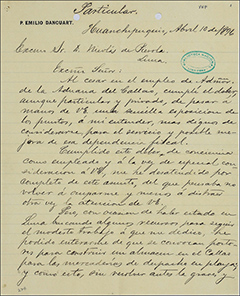 Particular.
P. EMILIO DANCUART.
Huanchipuquio, Abril 10 de 1896
Excmo Sr. D. Nicolás de Pierola
Lima.
Excmo Señor:
Al cesar en el empleo de Admor.
de la Aduana del Callao, cumplí el deber,
aunque particular y privado, de pasar a
manos de VE. una sencilla exposicion de
los puntos, á mi entender, mas dignos de
considerarse para el servicio y posible me-
jora de esa dependencia fiscal.
Cumplido este deber de conciencia
como empleado y á la vez de especial con-
sideracion á VE, me he desatendido por
completo de este asunto, del que pensaba no
volver á ocuparme y menos á distraer
otra vez la atencion de VE.
que con ocasion de haber estado en
Lima buscando algunos recursos para seguir
el modesto trabajo á que me dedico, he
podido enterarme de que se convocan postores
para construir un almacen en el Callao
para las mercaderias de despacho en la playa;
y como esto, sin